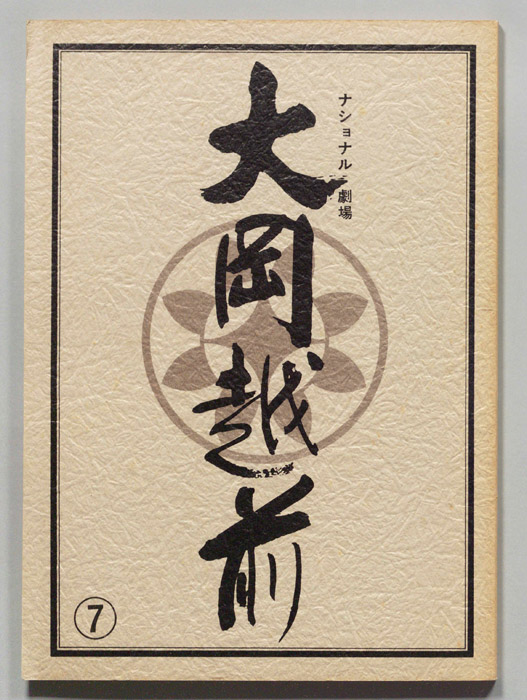 ナショナル劇場
大岡越前
⑦